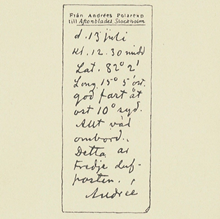 Från Andrées Polarexp.
till Aftonbladet, Stockholm
d. 13 juli
kl. 12.30 midd
Lat. 82° 2'
Long. 15° 5' ost.
god fart åt
ost 10° syd.
Allt väl
ombord.
Detta är
tredje duf-
posten.
Andrée